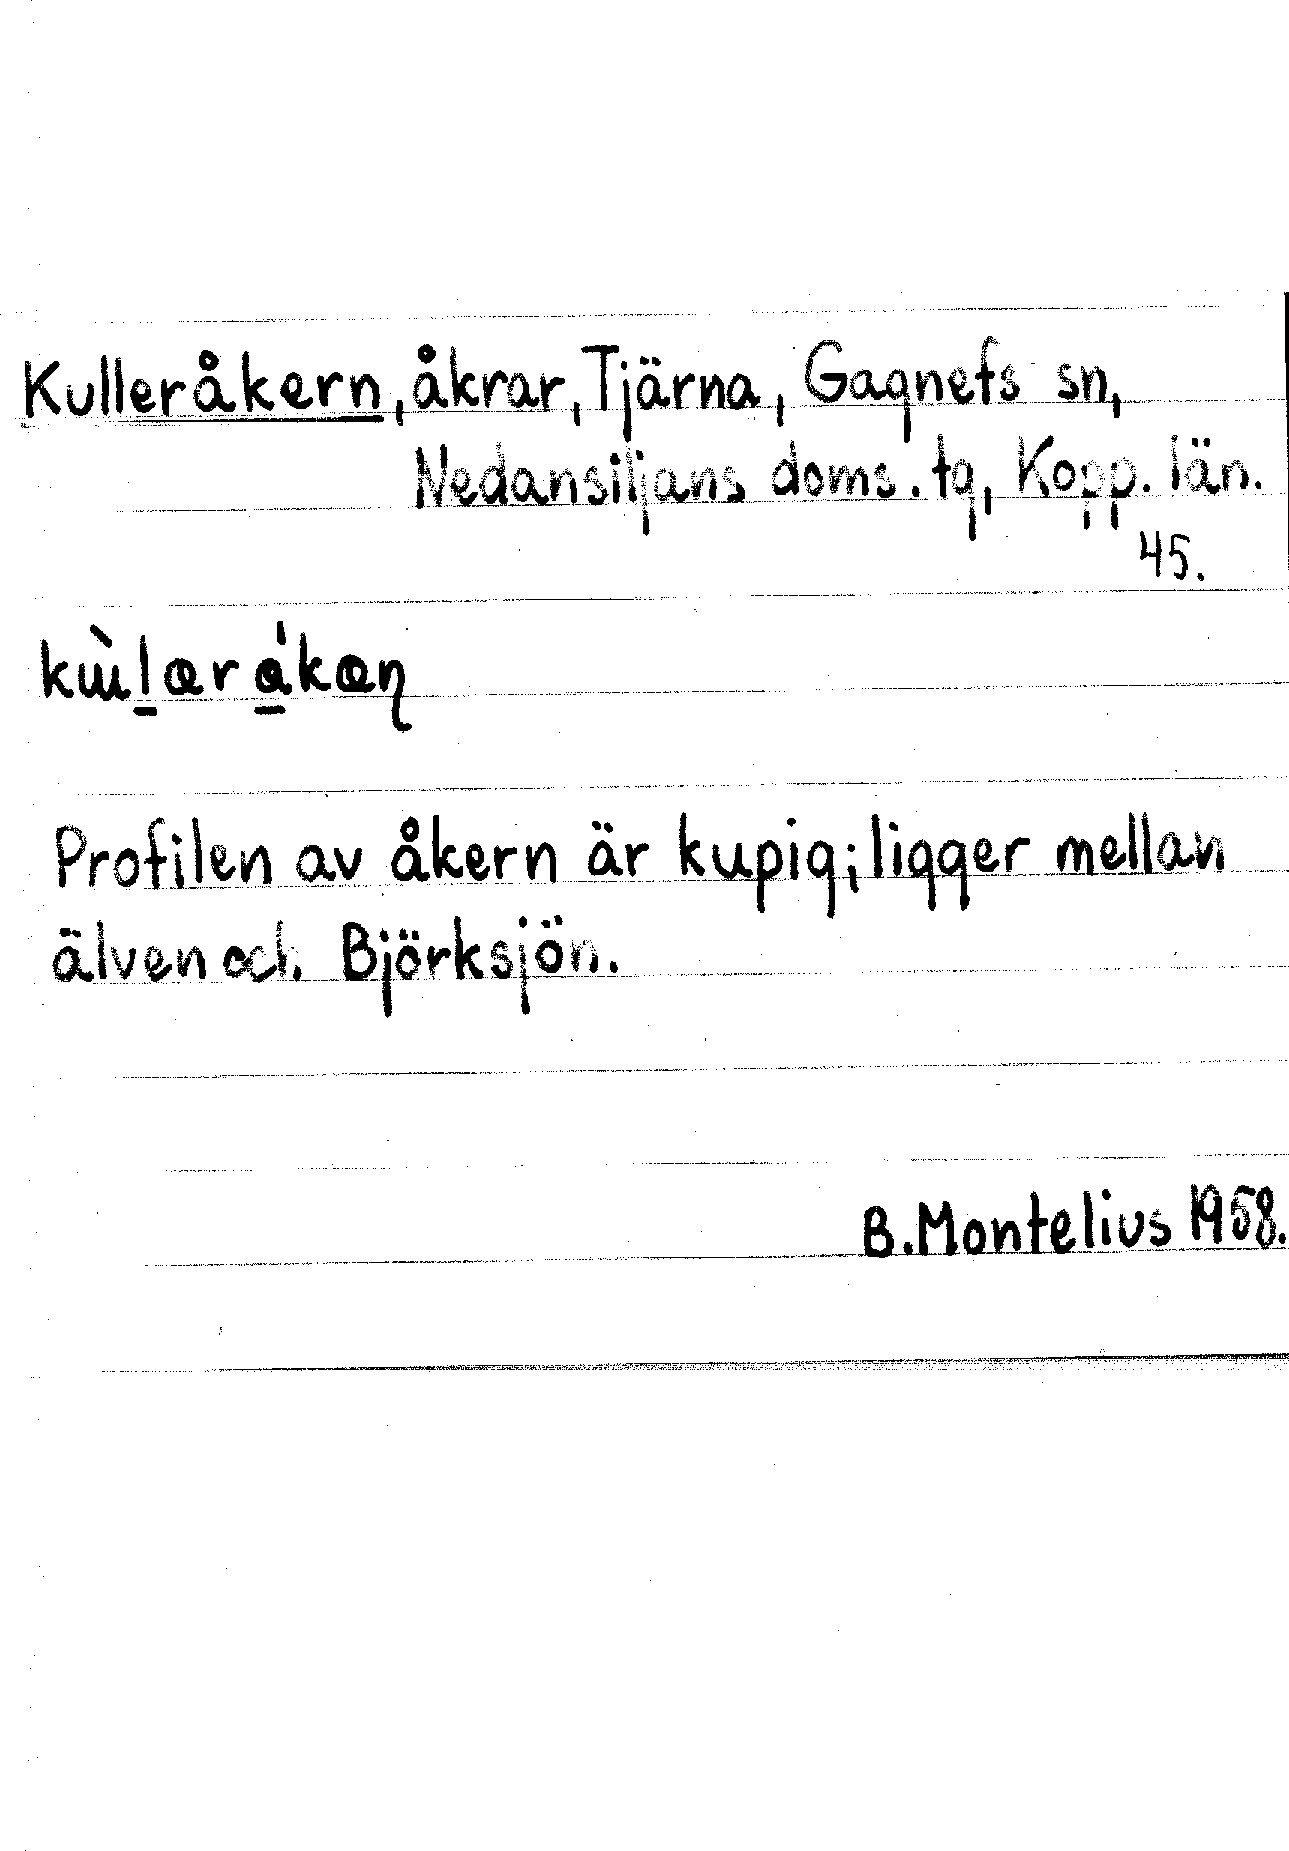 Kulleråkern, åkrar, Tjärna, Gagnefs sn,
Nedansiljans doms. tg, Kopp. län.
45.
Profilen av åkern är kupig; ligger mellan
älven och Björksjön.
B. Montelius 1958.